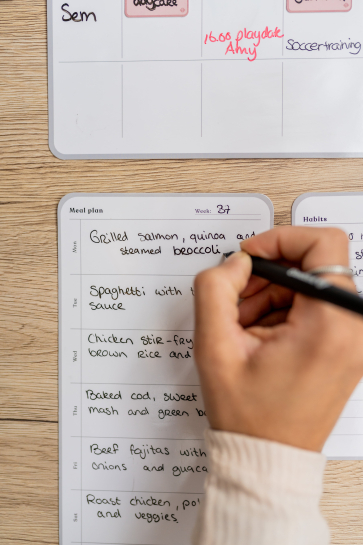 daycare
Sem
16.00 playdate
Amy
Soccertraining
Meal plan
Week: 37
Habits
Mon
Grilled salmon, quinoa and
steamed broccoli
Tue
Spaghetti with
sauce
Wed
Chicken stir-fry
brown rice and
Thu
Baked cod, sweet
mash and green
Fri
Beef fajitas with
onions and
Sat
Roast chicken,
and veggies